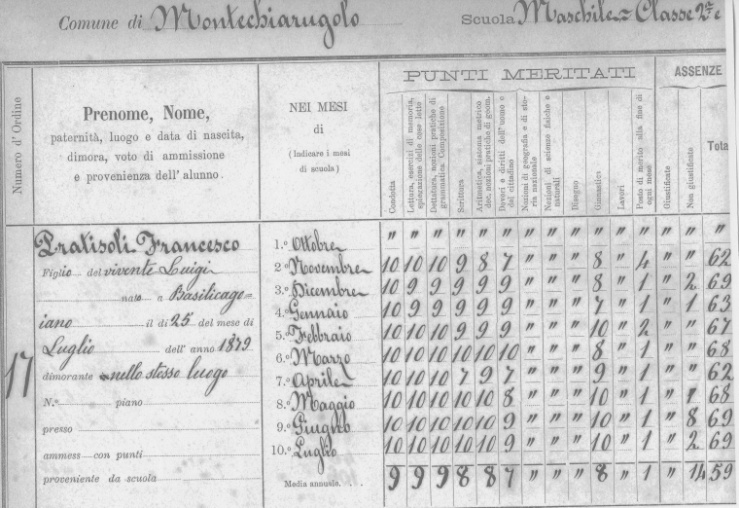 Comune di Montechiarugolo Scuola Maschile Classe 2ª
PUNTI MERITATI ASSENZE
Numero d' Ordine
Prenome, Nome,
paternità, luogo e data di nascita,
dimora, voto di ammissione
e provenienza dell' alunno.
NEI MESI
di
(Indicare i mesi
di scuola)
Condotta
Lettura, esercizi di memoria,
spiegazione delle cose lette
Dettatura, nozioni pratiche di
grammatica Composizione
Scrittura
Aritmetica, sistema metrico
dec. nozioni pratiche di geom.
Doveri e diritti dell' uomo e
del cittadino
Nozioni di geografia e di sto-
ria nazionale
Nozioni di scienze fisiche e
naturali
Disegno
Ginnastica
Lavori
Posto di merito alla fine di
ogni mese
Giustificate
Non giustificate
Tota
17
Pratisoli Francesco
Figlio del vivente Luigi
nato a Basilicago-
iano il dì 25 del mese di
Luglio dell' anno 1879
dimorante nello stesso luogo
N.° piano
presso
ammess con punti
proveniente da scuola
1.° Ottobre " " " " " " " " " " " " " " "
2.° Novembre 10 10 10 9 8 7 " " " 8 " 4 " " 62
3.° Dicembre 10 9 9 9 9 9 " " " 8 " 1 " 2 69
4.° Gennaio 10 9 9 9 9 9 " " " 7 " 1 " 1 63
5.° Febbraio 10 10 10 9 9 9 " " " 10 " 2 " " 67
6.° Marzo 10 10 10 10 10 10 " " " 8 " 1 " " 68
7.° Aprile 10 10 10 7 9 7 " " " 9 " 1 " " 62
8.° Maggio 10 10 10 10 10 8 " " " 10 " 1 " 1 68
9.° Giugno 10 10 10 10 10 9 " " " 10 " 1 " 8 69
10.° Luglio 10 10 10 10 10 9 " " " 10 " 1 " 2 69
Media annuale. . . 9 9 9 8 8 7 " " " 8 " 1 " 14 59